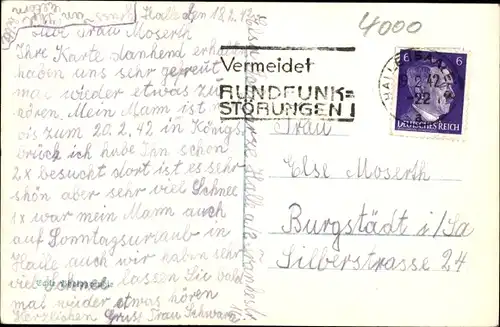 Halle den 18.2.42
Liebe Frau Moserth
Ihre Karte dankend erhalten
haben uns sehr gefreut
mal wieder etwas zu
hören. Mein Mann ist
bis zum 20.2.42 in Königs
brück ich habe Ihn schon
2x besucht dort ist es sehr
schön aber sehr viel Schnee
1x war mein Mann auch
auf Sonntagsurlaub in
Halle auch wir haben sehr
viel Schnee lassen Sie bald
mal wieder etwas hören
Herzlichen Gruss Frau Schwarz
4000
Vermeidet
RUNDFUNK=
STÖRUNGEN!
HALLE (SAALE)
2.42
-22
6
DEUTSCHES REICH
Frau
Else Moserth
Burgstädt i/Sa
Silberstrasse 24